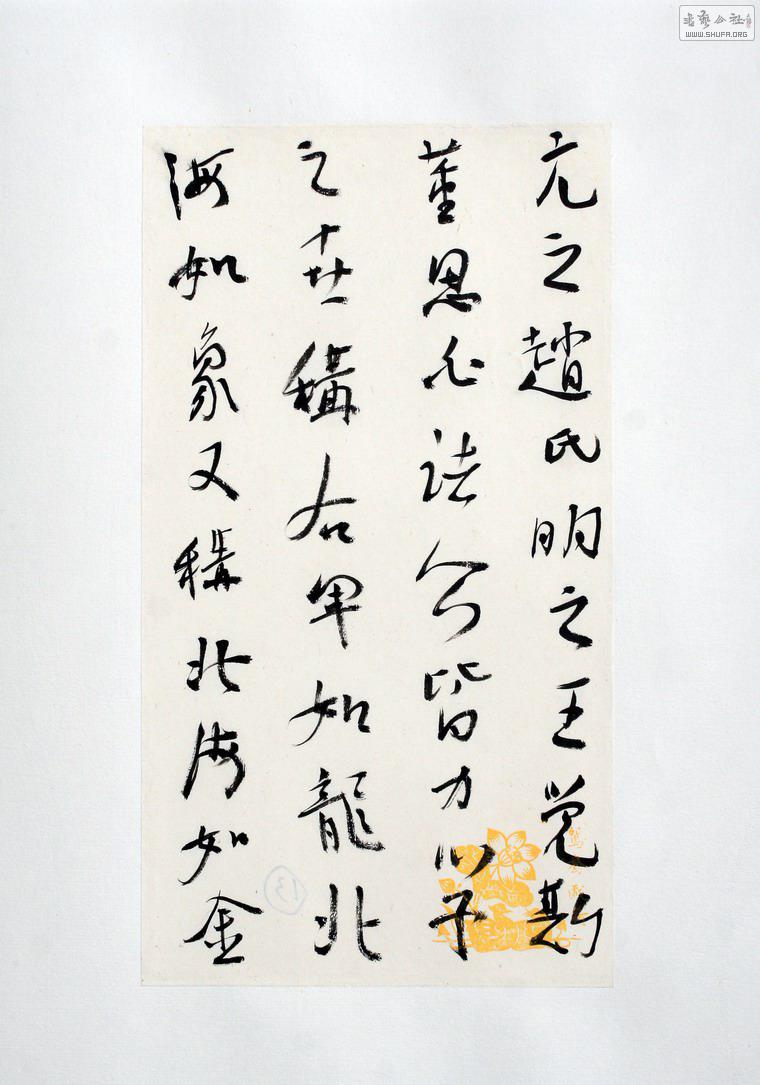 元之趙氏明之王覺斯
董思白諸公皆
之世稱右軍如龍北
海如象又稱北海如金
13
書藝公社
WWW.SHUFA.ORG